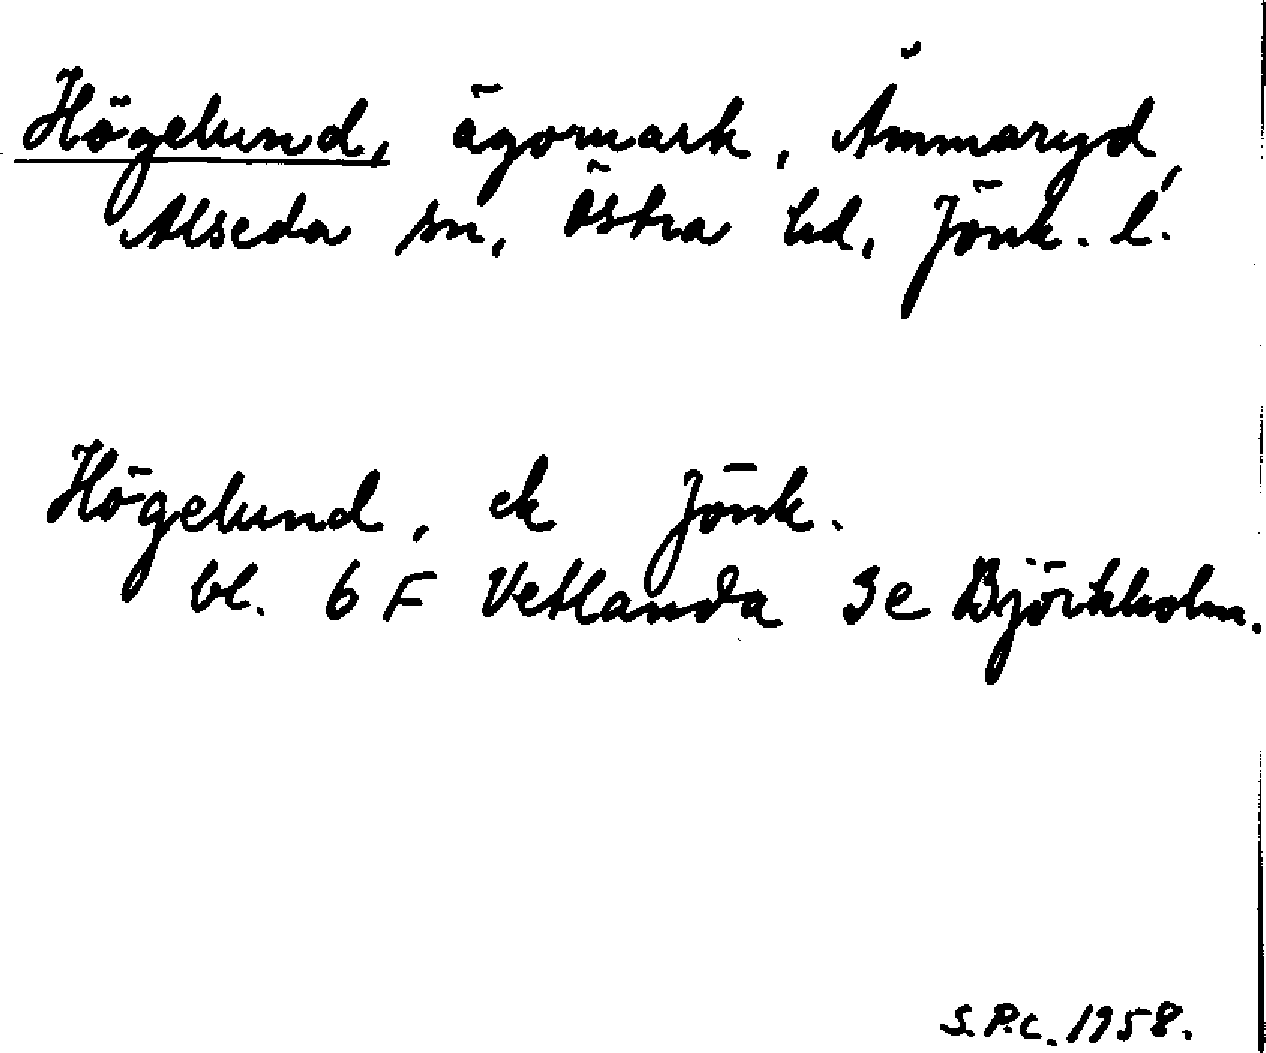 Högelund, ägomark, Ämmaryd,
Alseda sn, Östra hd, Jönk. l.
Högelund, ek Jönk.
bl. 6 F Vetlanda 3e Björkholm.
S.P.C. 1958.